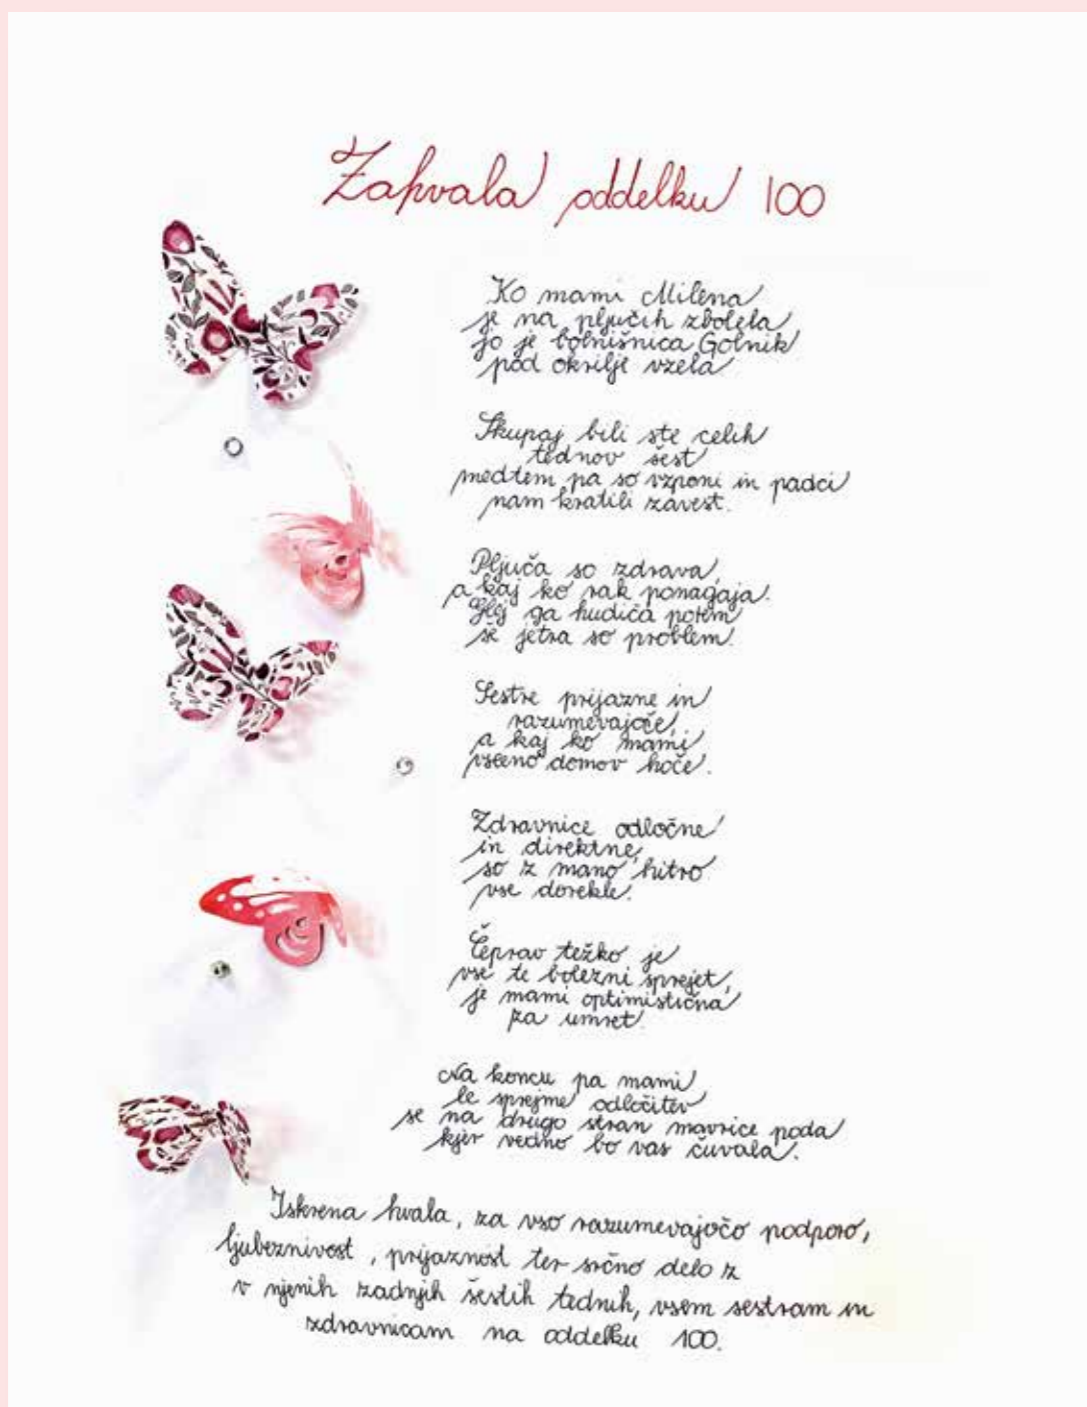 Zahvala oddelku 100
Ko mami Milena
je na pljučih zbolela,
jo je bolnišnica Golnik
pod okrilje vzela
Skupaj bili ste celih
tednov šest
medtem pa so vzponi in padci
nam kratili zavest.
Pljuča so zdrava,
a kaj ko rak ponagaja.
Glej ga hudiča potem
še jetra so problem.
Sestre prijazne in
razumevajoče,
a kaj ko mami
vseeno domov hoče.
Zdravnice odločne
in direktne,
so z mano hitro
vse dorekle.
Čeprav težko je
vse te bolezni sprejet,
je mami optimistična
za umret.
Na koncu pa mami
le sprejme odločitev
se na drugo stran mavrice poda
kjer vedno bo vas čuvala.
Iskrena hvala, za vso razumevajočo podporo,
ljubeznivost, prijaznost ter srčno delo z
v njenih zadnjih šestih tednih, vsem sestram in
zdravnicam na oddelku 100.